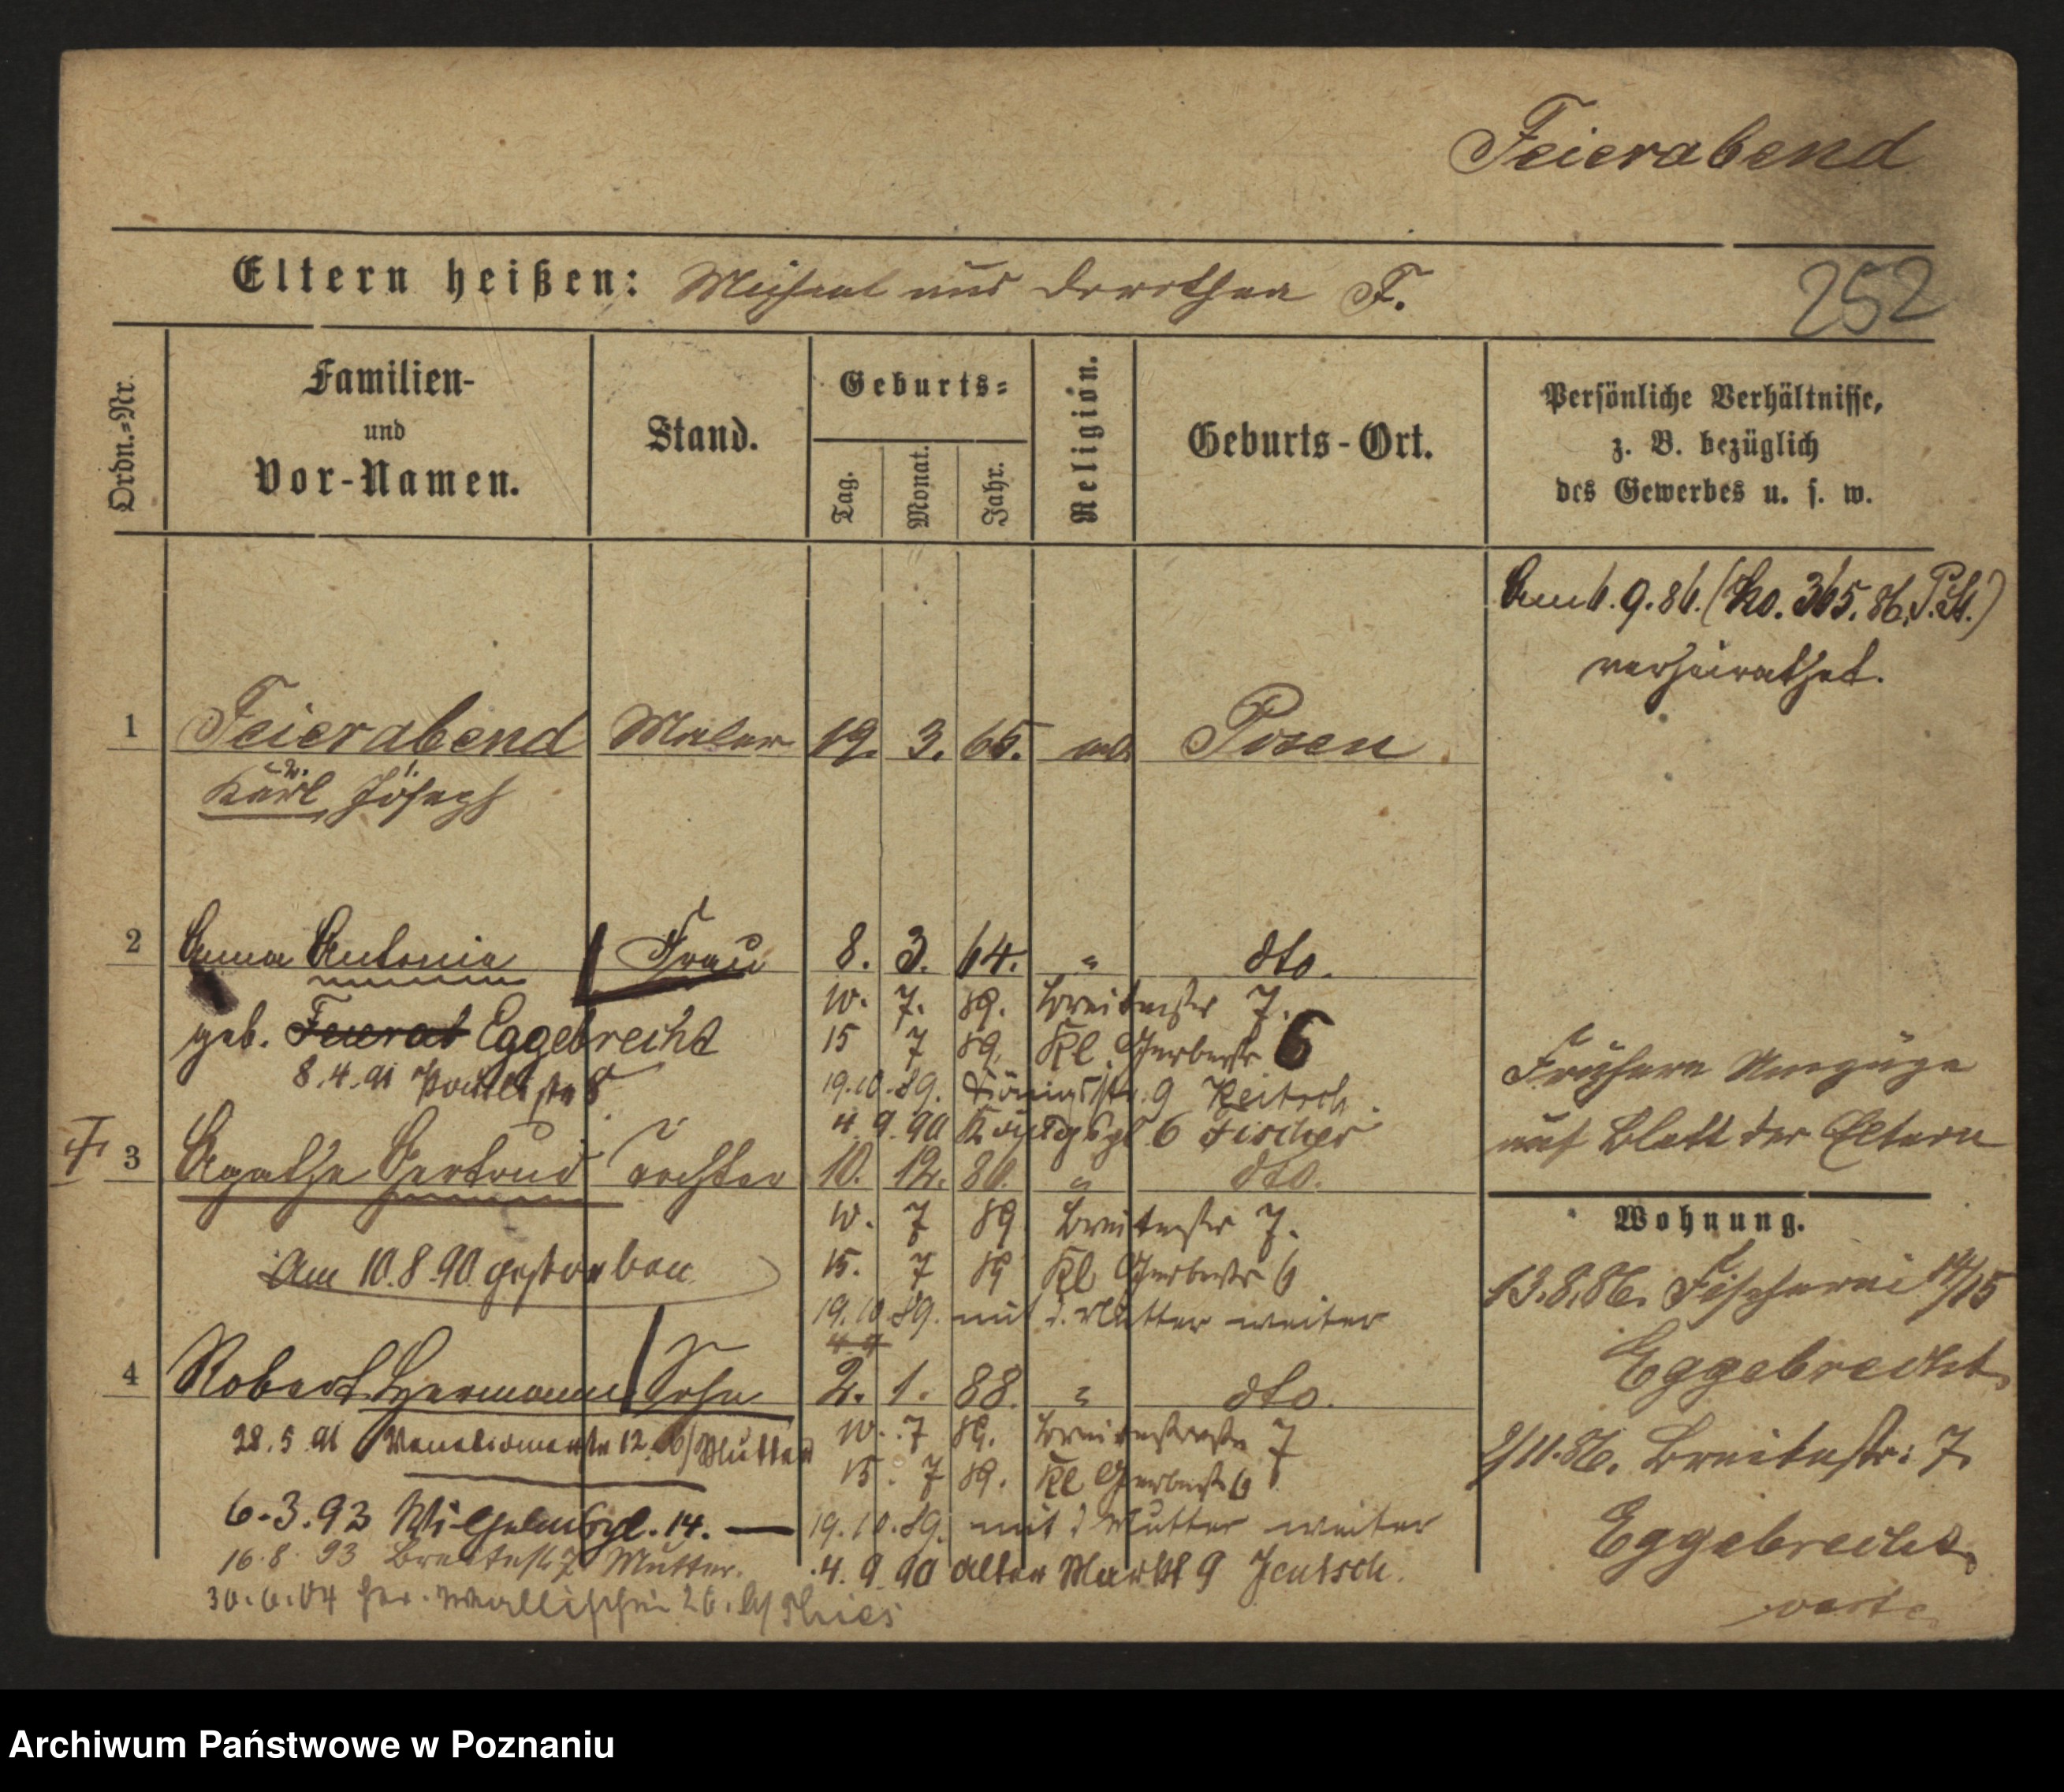 Feierabend
252
Eltern heißen: Michael und Dorothea F.
Ordn.-Nr.
Familien-
und
Vor-Namen.
Stand.
Geburts-
Tag.
Monat.
Jahr.
Religion.
Geburts-Ort.
Persönliche Verhältnisse,
z. B. bezüglich
des Gewerbes u. s. w.
Am 6. 9. 86. (No. 365. 86. P. St.)
verheirathet.
1 Feierabend Maler 19. 3. 65. Posen
Karl Joseph
2 Anna Antonia Frau 8. 3. 64. " dto.
10. 7. 89. Breitestr 7.
geb. Feierab Eggebrecht
15 7 89. Kl. Gerberstr 6
8.4.91 8
19.10.89. Königsstr. 9 Reitsch.
4 9 90 6 Fischer
3 Agathe Gertrud Tochter 10. 12. 86. " dto.
10. 7 89 Breitestr 7.
Am 10.8.90 gestorben
15. 7 89 Kl Gerberstr 6
19.10.89. mit d. Mutter weiter
4 9
4 Robert Hermann Sohn 2. 1. 88. " dto.
10. 7 89. 7
28.5 91 12. b/Mutter
15. 7 89. Kl Gerberstr 6
6.3.93 Wilhelmspl. 14. —
19.10.89. mit d Mutter weiter
16.8 93 Breitestr. 7 Mutter.
4. 9 90 Alter Markt 9 Jentsch.
30.6.04 Wallischei 26. b/ Thies
Frühere Umzüge
auf Blatt der Eltern
Wohnung.
13.8.86. Fischerei 14/15
Eggebrecht
2/11.86. Breitestr. 7.
Eggebrecht.
Archiwum Państwowe w Poznaniu